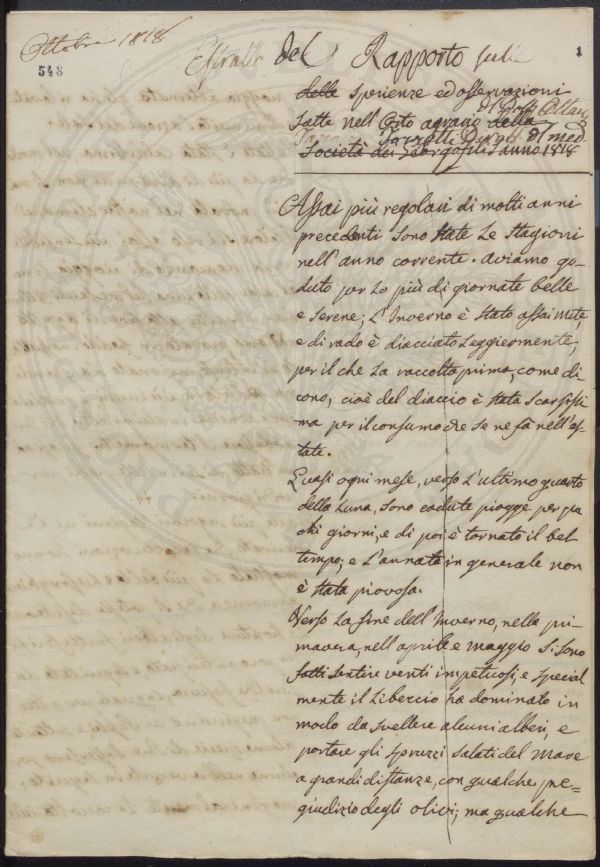 Ottobre 1818
548
1
Estratto del Rapporto sulle
delle sperienze ed osservazioni
fatte nell'Orto agrario della
del Dott. Ottav.
Targioni Tozzetti Prof. di med.
Società dei Georgofili l'anno 1818
Assai più regolari di molti anni
precedenti sono state le stagioni
nell'anno corrente. aviamo go-
duto per lo più di giornate belle
e serene; L'Inverno è stato assai mite,
e di rado è diacciato leggiermente,
per il che la raccolta prima, come di
cono, cioè del diaccio è stata scarsissi
ma per il consumo che se ne fà nell'es-
tate.
Quasi ogni mese, verso l'ultimo quarto
della Luna, sono cadute piogge per po
chi giorni, e di poi è tornato il bel
tempo; e l'annata in generale non
è stata piovosa.
Verso la fine dell'Inverno, nella pri-
mavera, nell'aprile e maggio si sono
fatti sentire venti impetuosi, e special
mente il Libeccio ha dominato in
modo da svellere alcuni alberi, e
portare gli spruzzi salati del Mare
a grandi distanze, con qualche pre=
giudizio degli olivi; ma qualche